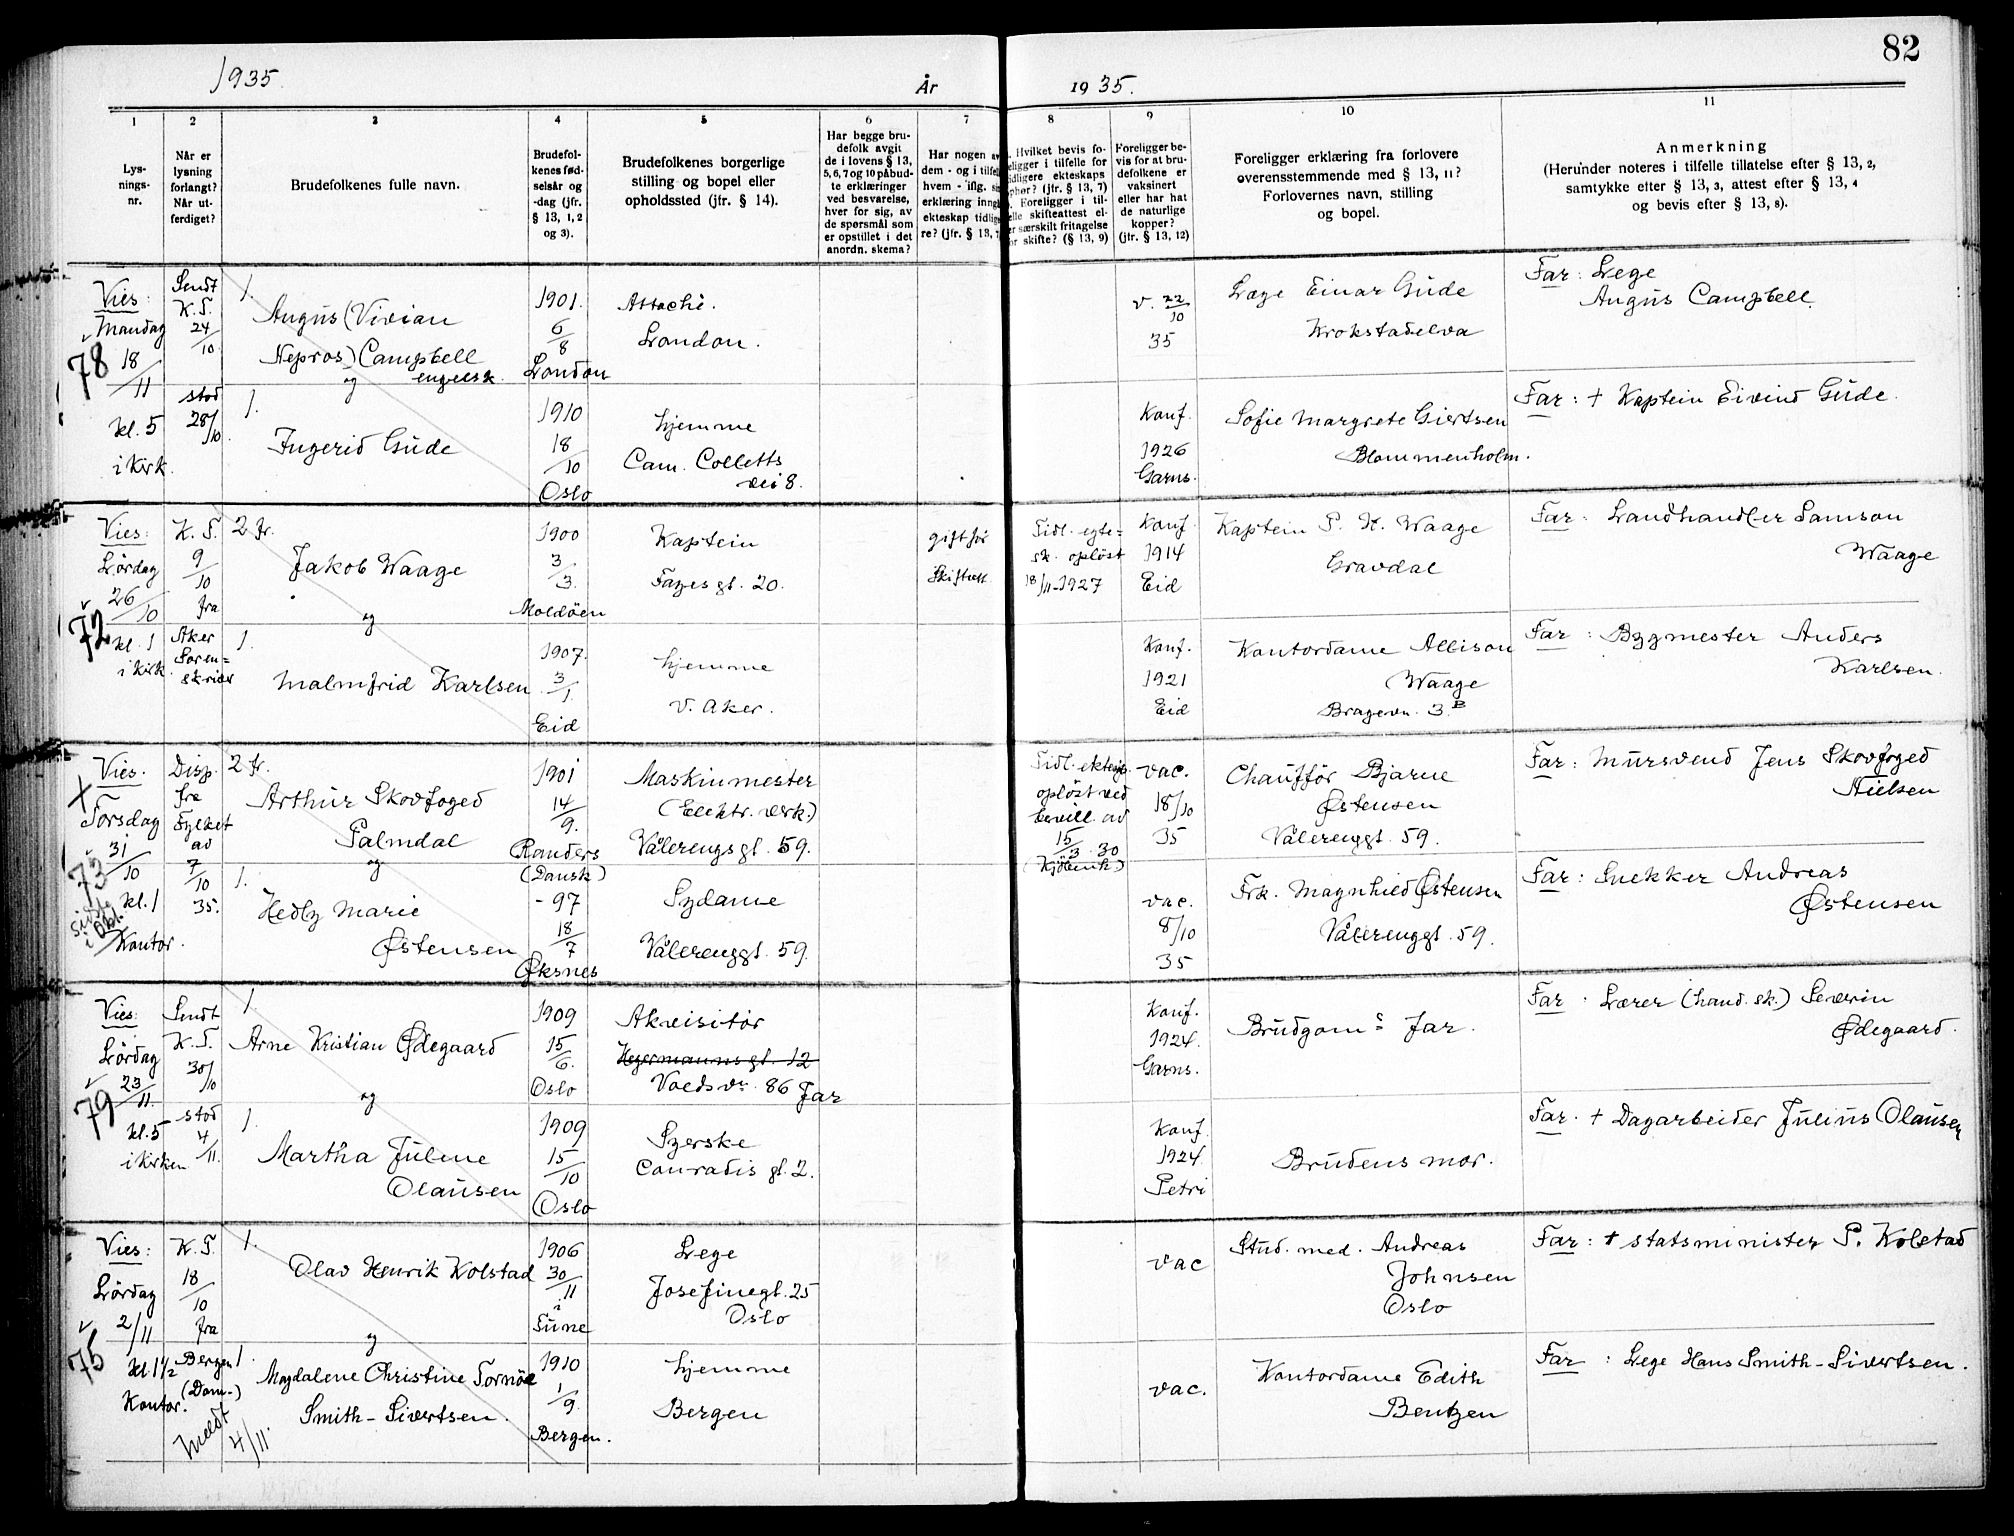 82
1935.
År
1935.
1
2
3
4
5
6
7
8
9
10
11
Lys-
nings-
nr.
Når er
lysning
forlangt?
Når ut-
ferdiget?
Brudefolkenes fulle navn.
Brudefol-
kenes fød-
selsår og
-dag (jfr.
§ 13, 1, 2
og 3).
Brudefolkenes borgerlige
stilling og bopel eller
opholdssted (jfr. § 14).
Har begge bru-
defolk avgit
de i lovens § 13,
5, 6, 7 og 10 påbud-
te erklæringer
ved besvarelse,
hver for sig, av
de spørsmål som
er opstillet i det
anordn. skema?
Har nogen av
dem - og i tilfel
hvem - iflg. si
erklæring inng
ekteskap tidlig
re? (jfr. § 13,
Hvilket bevis fo-
religger i tilfelle for
tidligere ekteskaps
ophør? (jfr. § 13, 7)
Foreligger i til-
felle skifteattest el-
er særskilt fritagelse
for skifte? (§ 13, 9)
Foreligger be-
vis for at bru-
defolkene er
vaksinert
eller har hat
de naturlige
kopper?
(jfr. § 13, 12)
Foreligger erklæring fra forlovere
overensstemmende med § 13, 11?
Forlovernes navn, stilling
og bopel.
Anmerkning
(Herunder noteres i tilfelle tillatelse efter § 13, 2,
samtykke efter § 13, 3, attest efter § 13, 4
og bevis efter § 13, 8).
78
Vies:
Mandag
18/11
kl. 5
i kirk.
Sendt
K. T.
24/10
stod
28/10.
1.
Angus (Vivian
Nepros) Campbell
engelsk
og
1901.
6/8
London
Attaché.
London.
v. 22/10
35
Læge Einar Gude
Krokstadelva
Far: Lege
Angus Campbell
1.
Ingerid Gude
1910
18/10
Oslo
hjemme
Cam. Colletts
vei 8.
Konf.
1926
Garns.
Sofie Margrete Giertsen
Blommenholm.
Far: + Kaptein Eivind Gude.
72
Vies:
Lørdag
26/10
kl. 1
i kirk.
K. T.
9/10
fra
Aker
Soren=
skriver
2 fr.
Jakob Waage
og
1900
3/3.
Moldöen
Kaptein
Fayesgt. 20.
gift før
Skifteatt
Tidl. egte=
sk. opløst
18/11-1927
Konf.
1914
Eid
Kaptein P. H. Waage
Gravdal
Far: Landhandler Samson
Waage
1.
Malmfrid Karlsen
1907.
3/1.
Eid
hjemme
V. Aker.
Konf.
1921
Eid
Kontordame Allison
Waage
Bragevn. 3B
Far: Bygmester Anders
Karlsen.
X
73
Vies.
Torsdag
31/10
kl. 1
Kontor.
Disp.
fra
Fylket
av
7/10
35.
2 fr.
Arthur Skovfoged
Palmdal
og
1901
14/9.
Randers
(Dansk)
Maskinmester
(Elektr. verk.)
Vålerengsgt. 59.
Tidl. ektesk.
opløst ved
bevill. av
15/3 30
(Kjøbenh)
vac.
18/10
35
Chauffør Bjarne
Østensen
Vålerenggt. 59.
Far: Mursvend Jens Skovfoged
Nielsen
1.
Hedly Marie
Østensen
- 97
18/7
Øksnes
Sydame
Vålerenggt. 59.
vac.
8/10
35
Frk. Magnhild Østensen
Vålerenggt. 59.
Far: Snekker Andreas
Østensen
79
Vies:
Lördag
23/11.
kl. 5
i kirken
Sendt
K. T.
30/10
stod
4/11.
1
Arne Kristian Ødegaard
og
1909
15/6.
Oslo
Akvisitør
Hegermannsgt. 12
Voedsvn. 86 Jar
Konf.
1924.
Garns.
Brudgoms far.
Far: Lærer (hand. sk.) Severin
Ødegaard.
1.
Martha Juline
Olaüsen
1909
15/10
Oslo
Syerske
Conradis gt. 2.
Konf.
1924.
Petri
Brudens mor.
Far. + Dagarbeider Julius Olaüsen
75
Vies:
Lördag
2/11
kl. 1½
Kontor.
K. T.
18/10
fra
Bergen
(Dom-)
Meldt
4/11.
1.
Olav Henrik Kolstad
og
1906
30/11
i
Tune
Lege
Josefinegt. 25
Oslo
vac
Stud. med. Andreas
Johnsen
Oslo
Far: + statsminister P. Kolstad
1.
Magdalene Christine Tornöe
Smith-Sivertsen.
1910
1/9.
Bergen.
hjemme
Bergen
vac.
Kontordame Edith
Bentzen
Far: Lege Hans Smith-Sivertsen.